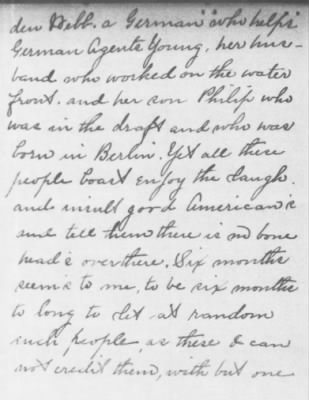 den Webb. a German "who helps
German Agents Young, her hus-
band who worked on the water
front. and her son Philip who
was in the draft and who was
born in Berlin. Yit all these
people boast enjoy the laugh.
and insult good American's
and tell them there is no bone
head's over there. Six months
seems to me, to be six months
to long to let at random
such people, as these I can
not credit them, with but one